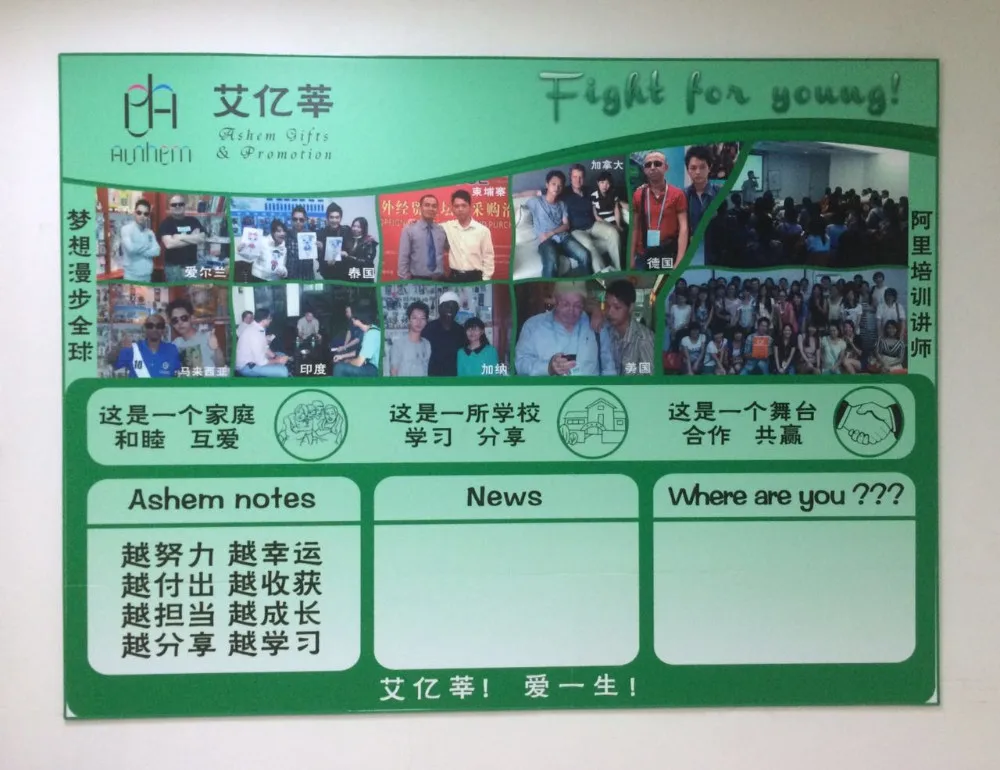 艾亿莘
Ashem
Ashem Gifts
& Promotion
Fight for young!
梦想漫步全球
爱尔兰
泰国
柬埔寨
加拿大
德国
马来西亚
印度
加纳
美国
阿里培训讲师
这是一个家庭
和睦 互爱
这是一所学校
学习 分享
这是一个舞台
合作 共赢
Ashem notes
越努力 越幸运
越付出 越收获
越担当 越成长
越分享 越学习
News
Where are you ???
艾亿莘! 爱一生!